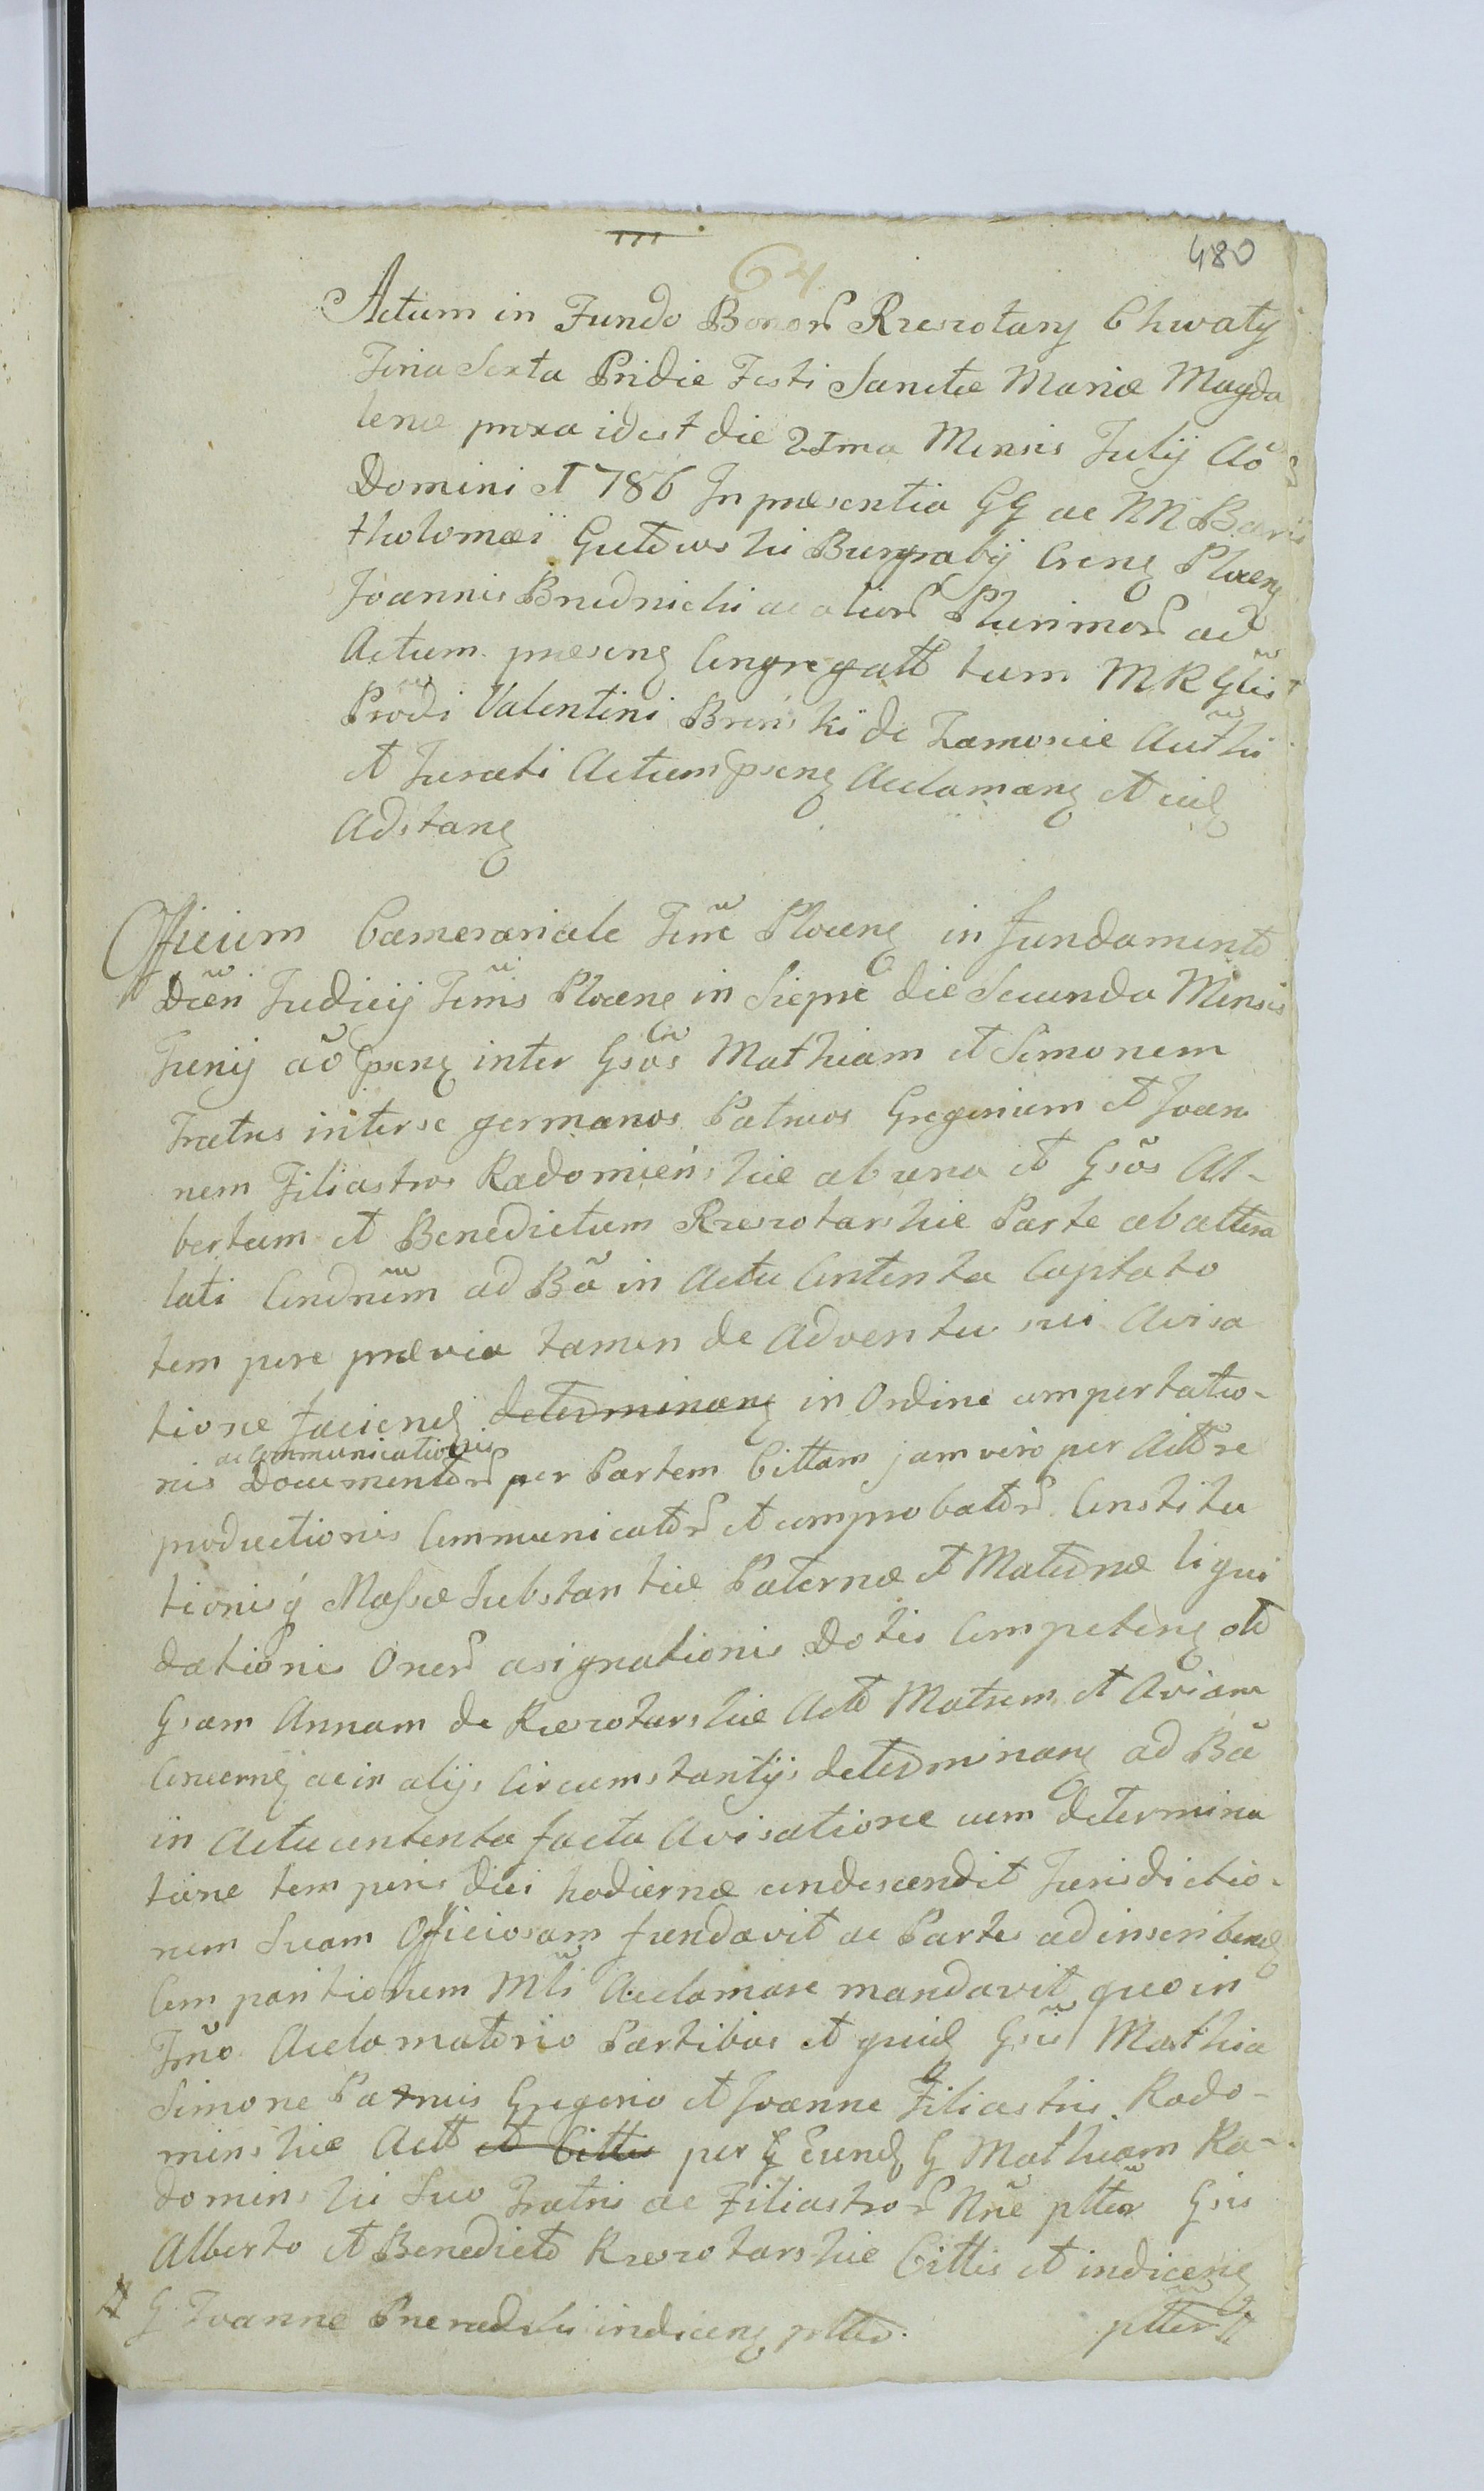 480
64
Actum in Fundo Bonor Rzeszotary Chwały
Feria Sexta Pridie Festi Sanctæ Mariæ Magda
lenæ proxa idest die 21ma Mensis Julij Aõ
Domini 1786 In præsentia GG ac NN Bar
tholomæi Gutowski Burgrabij Crens Plocens
Joannis Brudnicki ac alior Plurimor ad
Actum præsens Congregatt tum MR Glis
Prõdi Valentini Brinski de Zamoscie Authi
et Jurati Actum psens Acclamans et eid
Adstans
Officium Camerariale Trrẽ Plocens in fundamento
Dcẽti Judicij Trris Plocens in Sieprc die Secunda Mensis
Junij aõ psens inter Gsõs Mathiam et Simonem
Fratres inter se germanos Patruos Gregorium et Joan
nem Filiastros Radomieńskie ab una et Gsõs Al-
bertum et Benedictum Rzeszotarskie Parte ab altera
lati Condnũm ad Bã in Actu Contenta Captato
tempore prævia tamen de Adventu sui Avisa
tione faciend determinans in Ordine comportatio-
ac Communicationis
nis Documentor per Partem Cittam jam vero per Actore
productionis Communicator et comprobator Constitu
tionisq Massæ Substantiæ Paternæ et Maternæ liqui
dationis Oner asignationis Dotis Competens olo
Gsam Annam de Rzeszotarskie Acto Matrem et Aviam
Concerns ac in alijs Circumstantijs determinans ad Bã
in Actu contenta facta Avisatione cum determina
tione temporis diei hodiernæ condescendit Jurisdictio-
nem Suam Officiosam fundavit ac Partes ad inscribend
Comparitionem Mlĩ Acclamare mandavit quo in
Trnõ Acclamatorio Partibus et quid Gsis Mathia
Simone Patruis Gregorio et Joanne Filiastris Rado-
minskie Actt et Cittis per G Eund G Mathiam Ra-
dominski Suo Fratris ac Filiastror Nñe pltter Gsis
Alberto et Benedicto Rzeszotarskie Cittis et indicens
G Joanne indicens pltter.
pltter